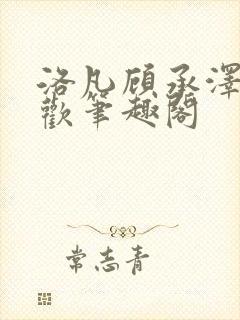 洛凡顾承泽
歡笔趣阁
常志青